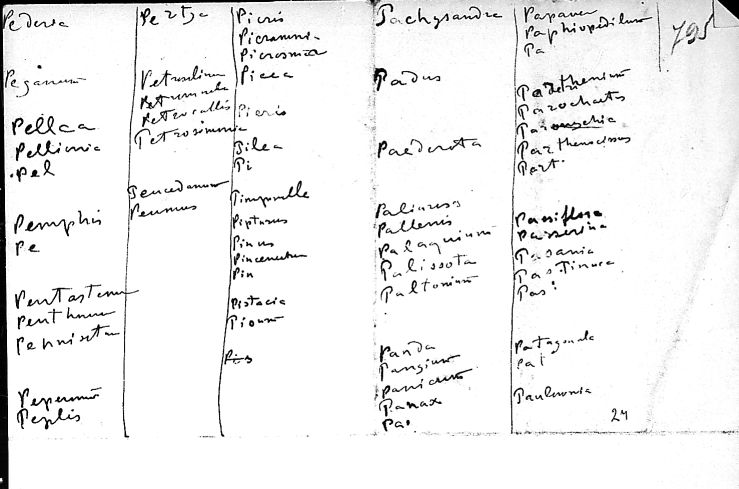 Pederia
Peganum
Pellca
Pellionia
Pel
Pemphis
Pe
Pentastemu
Penthum
Pennisetu
Peperomia
Peplis
Petrosimonia
Petrocallis
Peucedanum
Peumus
Picris
Picramnia
Picrasma
Picea
Pieris
Pilea
Pi
Pimpinelle
Pipturus
Pinus
Pin
Pistacia
Pisum
Pis
Pachysandra
Padus
Paederota
Paliurus
Pallenis
Palaquium
Palissota
Paltonium
Panda
Pangium
Panicum
Panax
Pa
Papaver
Paphiopedilum
Pa
Parthenium
Parochaetus
Paronychia
Parthenocissus
Part.
Passiflora
Passerina
Pasania
Pastinaca
Pas
Patagonula
Pat
Paulownia
24
795